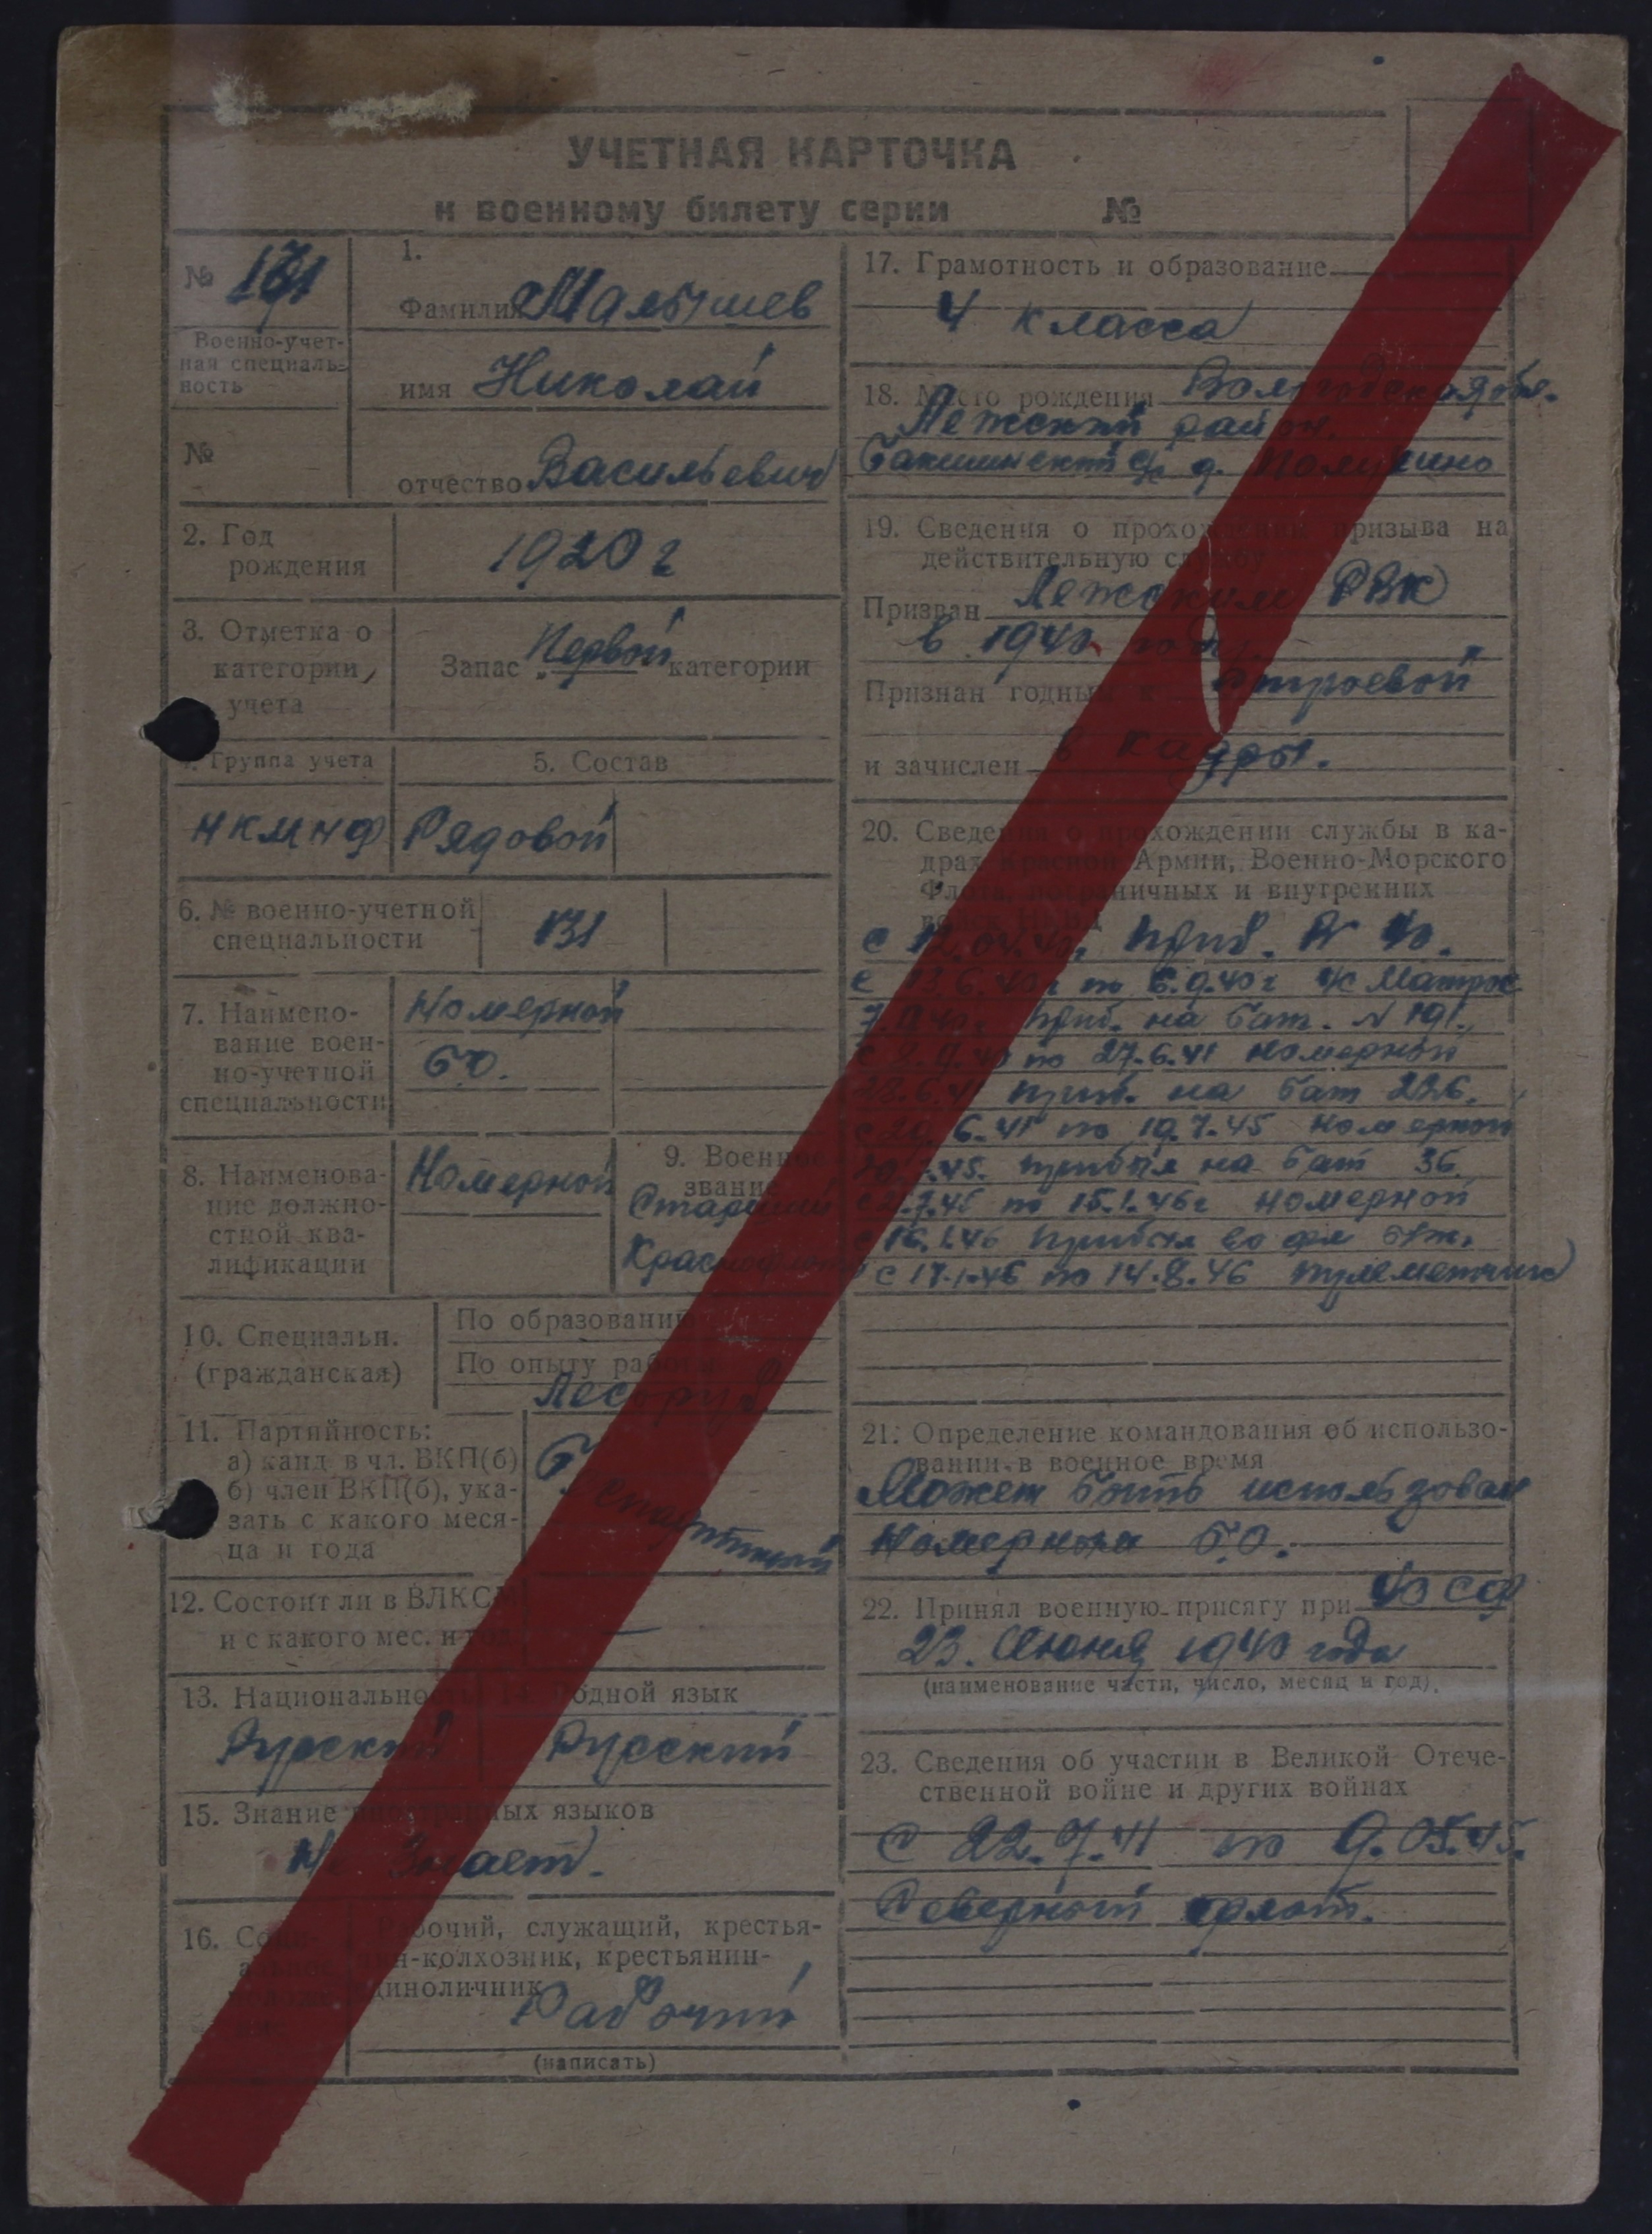 УЧЕТНАЯ КАРТОЧКА
к военному билету серии №
№ 131
Военно-учет-
ная специаль-
ность
№
1.
Фамилия Малышев
имя Николай
отчество Васильевич
2. Год
рождения
1920 г
3. Отметка о
категории
учета
Запас Первой категории
4. Группа учета
НКМНФ
5. Состав
Рядовой
6. № военно-учетной
специальности
131
7. Наимено-
вание воен-
но-учетной
специальности
Номерной
Б.О.
8. Наименова-
ние должно-
стной ква-
лификации
Номерной
9. Военное
звание
Старший
Краснофлот
10. Специальн.
(гражданская)
По образованию
По опыту работы
Лесоруб
11. Партийность:
а) канд. в чл. ВКП(б)
б) член ВКП(б), ука-
зать с какого меся-
ца и года
Беспартийный
12. Состоит ли в ВЛКСМ
и с какого мес. и год
—
13. Национальность
Русский
14. Родной язык
Русский
15. Знание иностранных языков
Не Знает.
16. Соци-
альное
положе-
ние
Рабочий, служащий, крестья-
нин-колхозник, крестьянин-
единоличник
Рабочий
(написать)
17. Грамотность и образование
4 класса
18. Место рождения Вологодская обл.
Лежский район,
с/с д.
19. Сведения о прохождении призыва на
действительную службу
Призван Лежским РВК
в 1940 году.
Признан годным к Строевой
и зачислен в кадры.
20. Сведения о прохождении службы в ка-
драх Красной Армии, Военно-Морского
Флота, пограничных и внутренних
войск НКВД
с приб.
с 13.6.40 г по 6.9.40 г Матрос
приб. на бат. N 191.
по 27.6.41 номерной
28.6.41 приб. на бат 226.
с 29.6.41 по 19.7.45 номерной
20.7.45. прибыл на бат 36.
с 21.7.45 по 15.1.46 г номерной
с 16.1.46 прибыл
с 17.1.46 по 14.8.46 пулеметчик
21. Определение командования об использо-
вании в военное время
Может быть использован
Номерной Б.О.
22. Принял военную присягу при СФ
23. Июня 1940 года
(наименование части, число, месяц и год).
23. Сведения об участии в Великой Отече-
ственной войне и других войнах
С 22.7.41 по 9.05.45.
Северный флот.